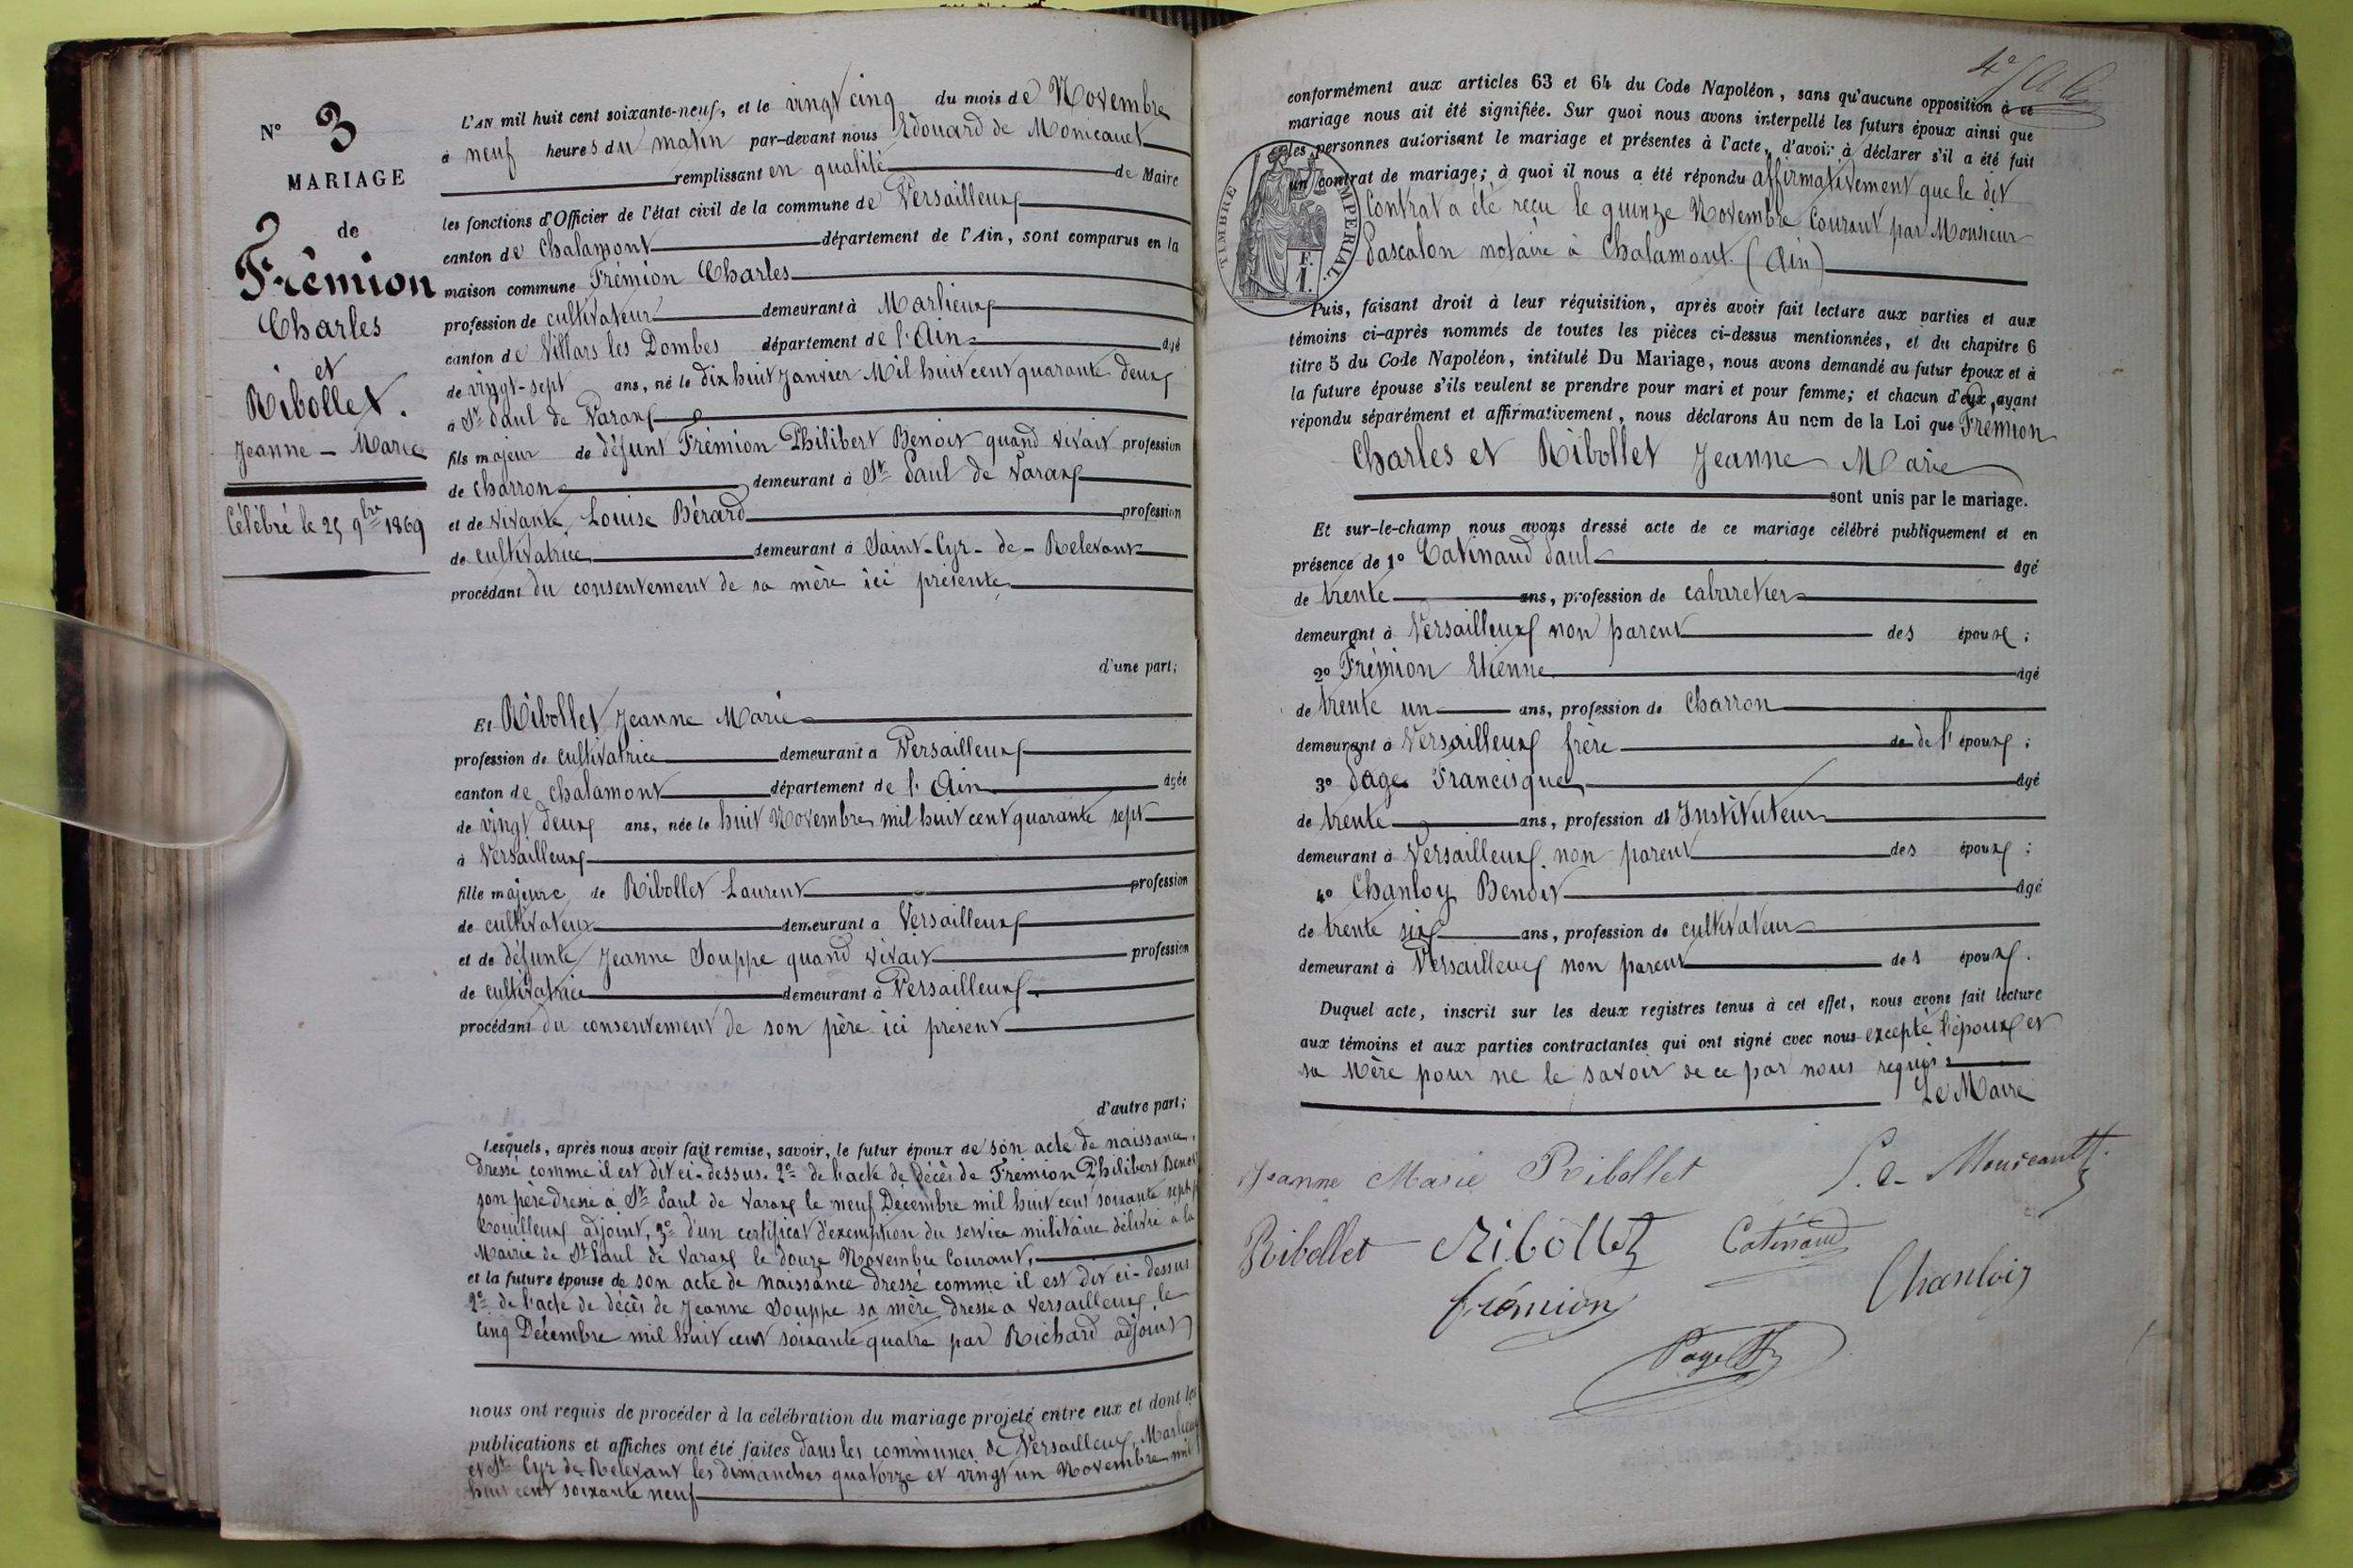 N° 3
MARIAGE
de
Frémion
Charles
et
Ribollet.
Jeanne - Marie
Célébré le 25 9bre 1869
L'AN mil huit cent soixante-neuf, et le vingt cinq du mois de Novembre
à neuf heures du matin par-devant nous Edouard de Monicault
remplissant en qualité de Maire
les fonctions d'Officier de l'état civil de la commune de Versailleux
canton de Chalamont département de l'Ain, sont comparus en la
maison commune Frémion Charles
profession de cultivateur demeurant à Marlieux
canton de Villars les Dombes département de l'Ain âgé
de vingt-sept ans, né le dix huit Janvier Mil huit cent quarante deux
à St Paul de Varax
fils majeur de défunt Frémion Philibert Benoit quand vivait profession
de charron demeurant à St Paul de Varax
et de vivante Louise Bérard profession
de cultivatrice demeurant à Saint-Cyr-de-Relevant
procédant du consentement de sa mère ici présente
d'une part;
Et Ribollet Jeanne Marie
profession de cultivatrice demeurant à Versailleux
canton de chalamont département de l'Ain âgée
de vingt deux ans, née le huit Novembre mil huit cent quarante sept
à Versailleux
fille majeure de Ribollet Laurent profession
de cultivateur demeurant à Versailleux
et de défunte Jeanne Souppe quand vivait profession
de cultivatrice demeurant à Versailleux.
procédant du consentement de son père ici présent
d'autre part;
Lesquels, après nous avoir fait remise, savoir, le futur époux de son acte de naissance,
dressé comme il est dit ci-dessus. 2° de l'acte de décès de Frémion Philibert Benoit
son père dressé à St Paul de Varax le neuf Décembre mil huit cent soixante sept p
Bouilloux adjoint, 3° d'un certificat d'exemption du service militaire délivré à la
Mairie de St Paul de Varax le douze Novembre Courant,
et la future épouse de son acte de naissance dressé comme il est dit ci-dessus
2° de l'acte de décès de Jeanne Souppe sa mère dressé à Versailleux, le
cinq Décembre mil huit cent soixante quatre par Richard adjoint
nous ont requis de procéder à la célébration du mariage projeté entre eux et dont les
publications et affiches ont été faites dans les communes de Versailleux, Marlieux
et St Cyr de Relevant les dimanches quatorze et vingt un Novembre mil
huit cent soixante neuf
conformément aux articles 63 et 64 du Code Napoléon, sans qu'aucune opposition à ce
mariage nous ait été signifiée. Sur quoi nous avons interpellé les futurs époux ainsi que
les personnes autorisant le mariage et présentes à l'acte, d'avoir à déclarer s'il a été fait
un contrat de mariage; à quoi il nous a été répondu affirmativement que le dit
Contrat a été reçu le quinze Novembre Courant par Monsieur
Pascalon notaire à Chalamont. (Ain)
TIMBRE IMPERIAL.
F.
1.
Puis, faisant droit à leur réquisition, après avoir fait lecture aux parties et aux
témoins ci-après nommés de toutes les pièces ci-dessus mentionnées, et du chapitre 6
titre 5 du Code Napoléon, intitulé Du Mariage, nous avons demandé au futur époux et à
la future épouse s'ils veulent se prendre pour mari et pour femme; et chacun d'eux, ayant
répondu séparément et affirmativement, nous déclarons Au nom de la Loi que Frémion
Charles et Ribollet Jeanne Marie
sont unis par le mariage.
Et sur-le-champ nous avons dressé acte de ce mariage célébré publiquement et en
présence de 1° Catinaud Paul âgé
de trente ans, profession de cabaretier
demeurant à Versailleux non parent des époux;
2° Frémion Etienne âgé
de trente un ans, profession de Charron
demeurant à Versailleux frère de de l'époux;
3° Page Francisque âgé
de trente ans, profession d' Instituteur
demeurant à Versailleux. non parent des époux;
4° Chanloy Benoit âgé
de trente six ans, profession de cultivateur
demeurant à Versailleux non parent des époux.
Duquel acte, inscrit sur les deux registres tenus à cet effet, nous avons fait lecture
aux témoins et aux parties contractantes qui ont signé avec nous excepté l'époux et
sa mère pour ne le savoir de ce par nous requis.
Le Maire
Jeanne Marie Ribollet
Ribollet Ribollet Catinaud
Chanloy
frémion
Page